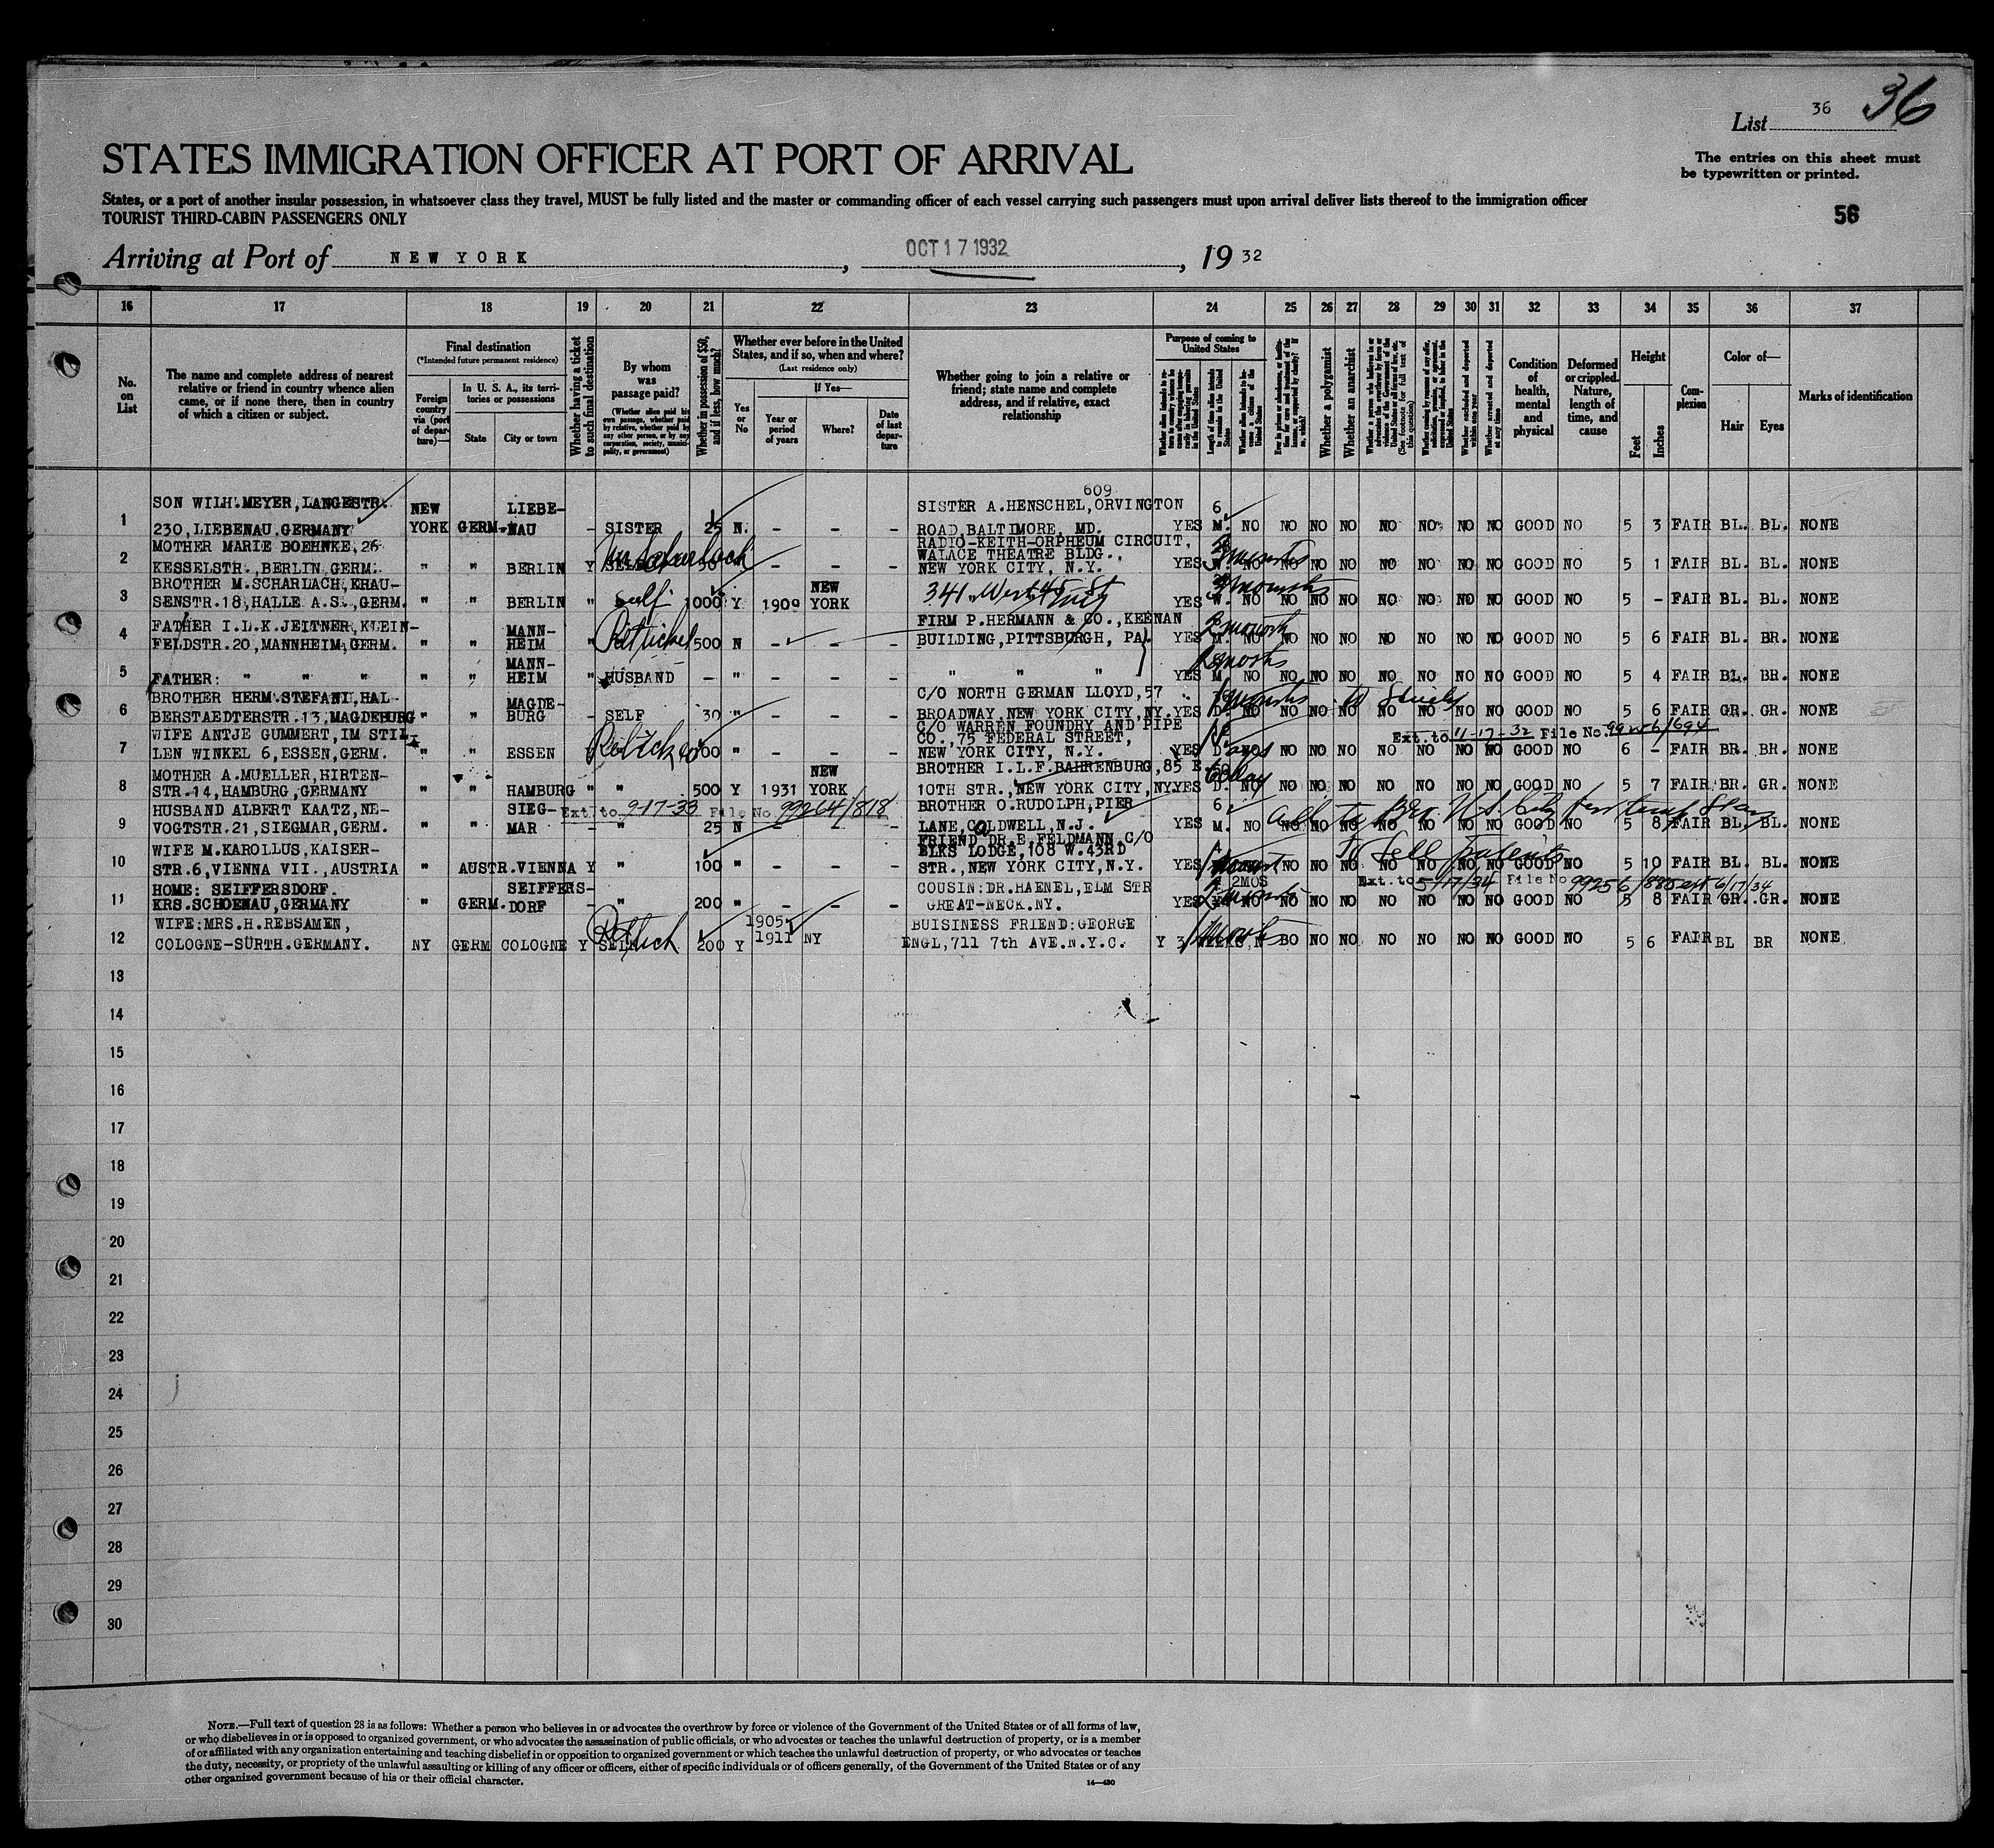 36
List 36
STATES IMMIGRATION OFFICER AT PORT OF ARRIVAL
The entries on this sheet must
be typewritten or printed.
States, or a port of another insular possession, in whatsoever class they travel, MUST be fully listed and the master or commanding officer of each vessel carrying such passengers must upon arrival deliver lists thereof to the immigration officer
TOURIST THIRD-CABIN PASSENGERS ONLY
56
Arriving at Port of NEW YORK, OCT 17 1932, 1932
16 17 18 19 20 21 22 23 24 25 26 27 28 29 30 31 32 33 34 35 36 37
No. on List
The name and complete address of nearest
relative or friend in country whence alien
came, or if none there, then in country
of which a citizen or subject.
Final destination
(*Intended future permanent residence)
Foreign country via (port of departure)—
In U. S. A., its territories or possessions
State
City or town
Whether having a ticket to such final destination
By whom was passage paid?
(Whether alien paid his own passage, whether paid by relative, whether paid by any other person, or by any corporation, society, municipality, or government)
Whether in possession of $50, and if less, how much?
Whether ever before in the United
States, and if so, when and where?
(Last residence only)
Yes or No
If Yes—
Year or period of years
Where?
Date of last departure
Whether going to join a relative or
friend; state name and complete
address, and if relative, exact
relationship
Purpose of coming to United States
Whether a polygamist
Whether an anarchist
Condition of health, mental and physical
Deformed or crippled. Nature, length of time, and cause
Height
Feet
Inches
Complexion
Color of—
Hair
Eyes
Marks of identification
1 SON WILH.MEYER,LANGESTR. NEW LIEBE- SISTER A.HENSCHEL,ORVINGTON 609 6
230,LIEBENAU.GERMANY YORK GERM. NAU - SISTER 25 N. - - - ROAD,BALTIMORE, MD. YES M. NO NO NO NO NO NO NO NO GOOD NO 5 3 FAIR BL. BL. NONE
2 MOTHER MARIE BOEHNKE,26 RADIO-KEITH-ORPHEUM CIRCUIT,
WALACE THEATRE BLDG.,
KESSELSTR.,BERLIN,GERM. " " BERLIN Y - - - NEW YORK CITY, N.Y. YES NO NO NO NO NO NO NO NO GOOD NO 5 1 FAIR BL. BL. NONE
3 BROTHER M.SCHARLACH,KHAU- NEW 3 months
SENSTR.18,HALLE A.S.,GERM. " " BERLIN " Self 1000 Y 1909 YORK - 341 West 45 St YES NO NO NO NO NO NO NO NO GOOD NO 5 - FAIR BL. BL. NONE
4 FATHER I.L.K.JEITNER,KLEIN- MANN- FIRM P.HERMANN & CO.,KEENAN 2 month
FELDSTR.20,MANNHEIM,GERM. " " HEIM " 500 N - - - BUILDING,PITTSBURGH, PA. YES M. NO NO NO NO NO NO NO NO GOOD NO 5 6 FAIR BL. BR. NONE
5 MANN-
FATHER: " " " " " HEIM " HUSBAND - " - - - " " " YES M NO NO NO NO NO NO NO NO GOOD NO 5 4 FAIR BL. BR. NONE
6 BROTHER HERM.STEFANI,HAL- MAGDE- C/O NORTH GERMAN LLOYD,57 to Study
BERSTAEDTERSTR.13,MAGDEBURG " " BURG - SELF 30 " - - - BROADWAY,NEW YORK CITY,NY. YES NO NO NO NO NO NO NO NO GOOD NO 5 6 FAIR GR. GR. NONE
7 WIFE ANTJE GUMMERT,IM STIL C/O WARREN FOUNDRY AND PIPE
CO.,75 FEDERAL STREET, Ext. to 11-17-32 File No.
LEN WINKEL 6,ESSEN,GERM. " " ESSEN " - - - NEW YORK CITY, N.Y. YES NO NO NO NO NO NO NO GOOD NO 6 - FAIR BR. BR. NONE
8 MOTHER A.MUELLER,HIRTEN- NEW BROTHER I.L.F.BAHRENBURG,85 E
STR.14,HAMBURG,GERMANY " " HAMBURG " " 500 Y 1931 YORK - 10TH STR.,NEW YORK CITY,NY. YES D. NO NO NO NO NO NO NO NO GOOD NO 5 7 FAIR BR. GR. NONE
9 HUSBAND ALBERT KAATZ,NE- SIEG- Ext. to 9-17-33 File No. 99264/818 BROTHER O.RUDOLPH,PIER 6
VOGTSTR.21,SIEGMAR,GERM. " " MAR - " 25 N - - - LANE,CALDWELL,N.J. YES M. NO NO NO NO NO NO NO NO GOOD NO 5 8 FAIR BL. BL. NONE
10 WIFE M.KAROLLUS,KAISER- FRIEND DR.E.FELDMANN,C/O
ELKS LODGE,108 W.43RD To sell patents
STR.6,VIENNA VII.,AUSTRIA " AUSTR. VIENNA Y " 100 " - - - STR.,NEW YORK CITY,N.Y. YES NO NO NO NO NO NO NO GOOD NO 5 10 FAIR BL. BL. NONE
11 HOME: SEIFFERSDORF. SEIFFERS- COUSIN:DR.HAENEL,ELM STR 2MOS Ext. to 5/17/34 File No. 99256/885 ext 6/17/34
KRS.SCHOENAU,GERMANY " GERM. DORF - " 200 " - - - GREAT-NECK.NY. YES NO NO NO NO NO NO NO NO GOOD NO 5 8 FAIR GR. GR. NONE
12 WIFE:MRS.H.REBSAMEN, 1905 BUISINESS FRIEND:GEORGE
COLOGNE-SÜRTH.GERMANY. NY GERM COLOGNE Y SELF 200 Y 1911 NY - ENGL,711 7th AVE.N.Y.C. Y 3 BO NO NO NO NO NO NO GOOD NO 5 6 FAIR BL BR NONE
13
14
15
16
17
18
19
20
21
22
23
24
25
26
27
28
29
30
NOTE.—Full text of question 28 is as follows: Whether a person who believes in or advocates the overthrow by force or violence of the Government of the United States or of all forms of law,
or who disbelieves in or is opposed to organized government, or who advocates the assassination of public officials, or who advocates or teaches the unlawful destruction of property, or is a member
of or affiliated with any organization entertaining and teaching disbelief in or opposition to organized government or which teaches the unlawful destruction of property, or who advocates or teaches
the duty, necessity, or propriety of the unlawful assaulting or killing of any officer or officers, either of specific individuals or of officers generally, of the Government of the United States or of any
other organized government because of his or their official character.
14—430